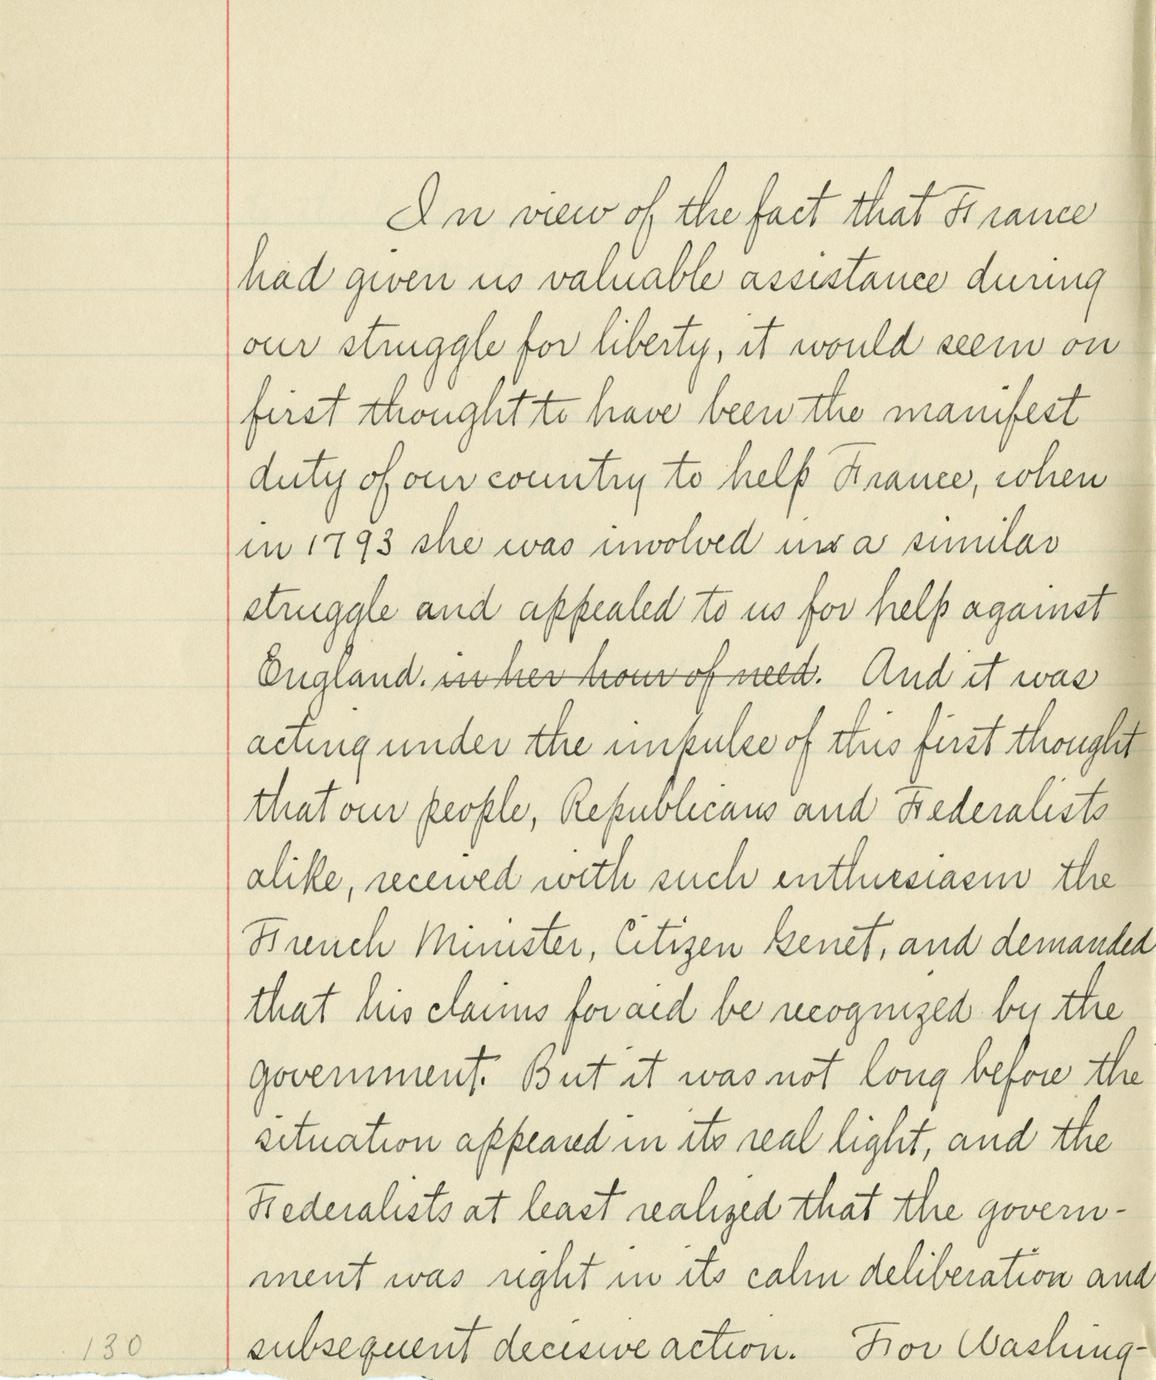 In view of the fact that France
had given us valuable assistance during
our struggle for liberty, it would seem on
first thought to have been the manifest
duty of our country to help France, when
in 1793 she was involved in a similar
struggle and appealed to us for help against
England. in her hour of need. And it was
acting under the impulse of this first thought
that our people, Republicans and Federalists
alike, received with such enthusiasm the
French Minister, Citizen Genet, and demanded
that his claims for aid be recognized by the
government. But it was not long before the
situation appeared in its real light, and the
Federalists at least realized that the govern-
ment was right in its calm deliberation and
subsequent decisive action. For Washing-
130